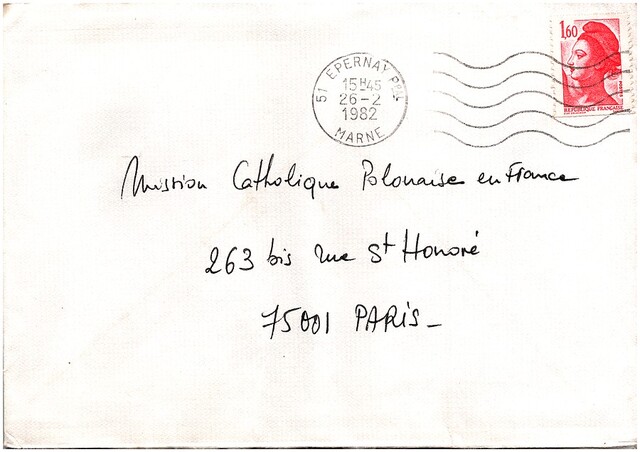 1,60
POSTES
REPUBLIQUE FRANÇAISE
51 EPERNAY PPAL
15H45
26-2
1982
MARNE
Mission Catholique Polonaise en France
263 bis rue St Honoré
75001 PARIS_